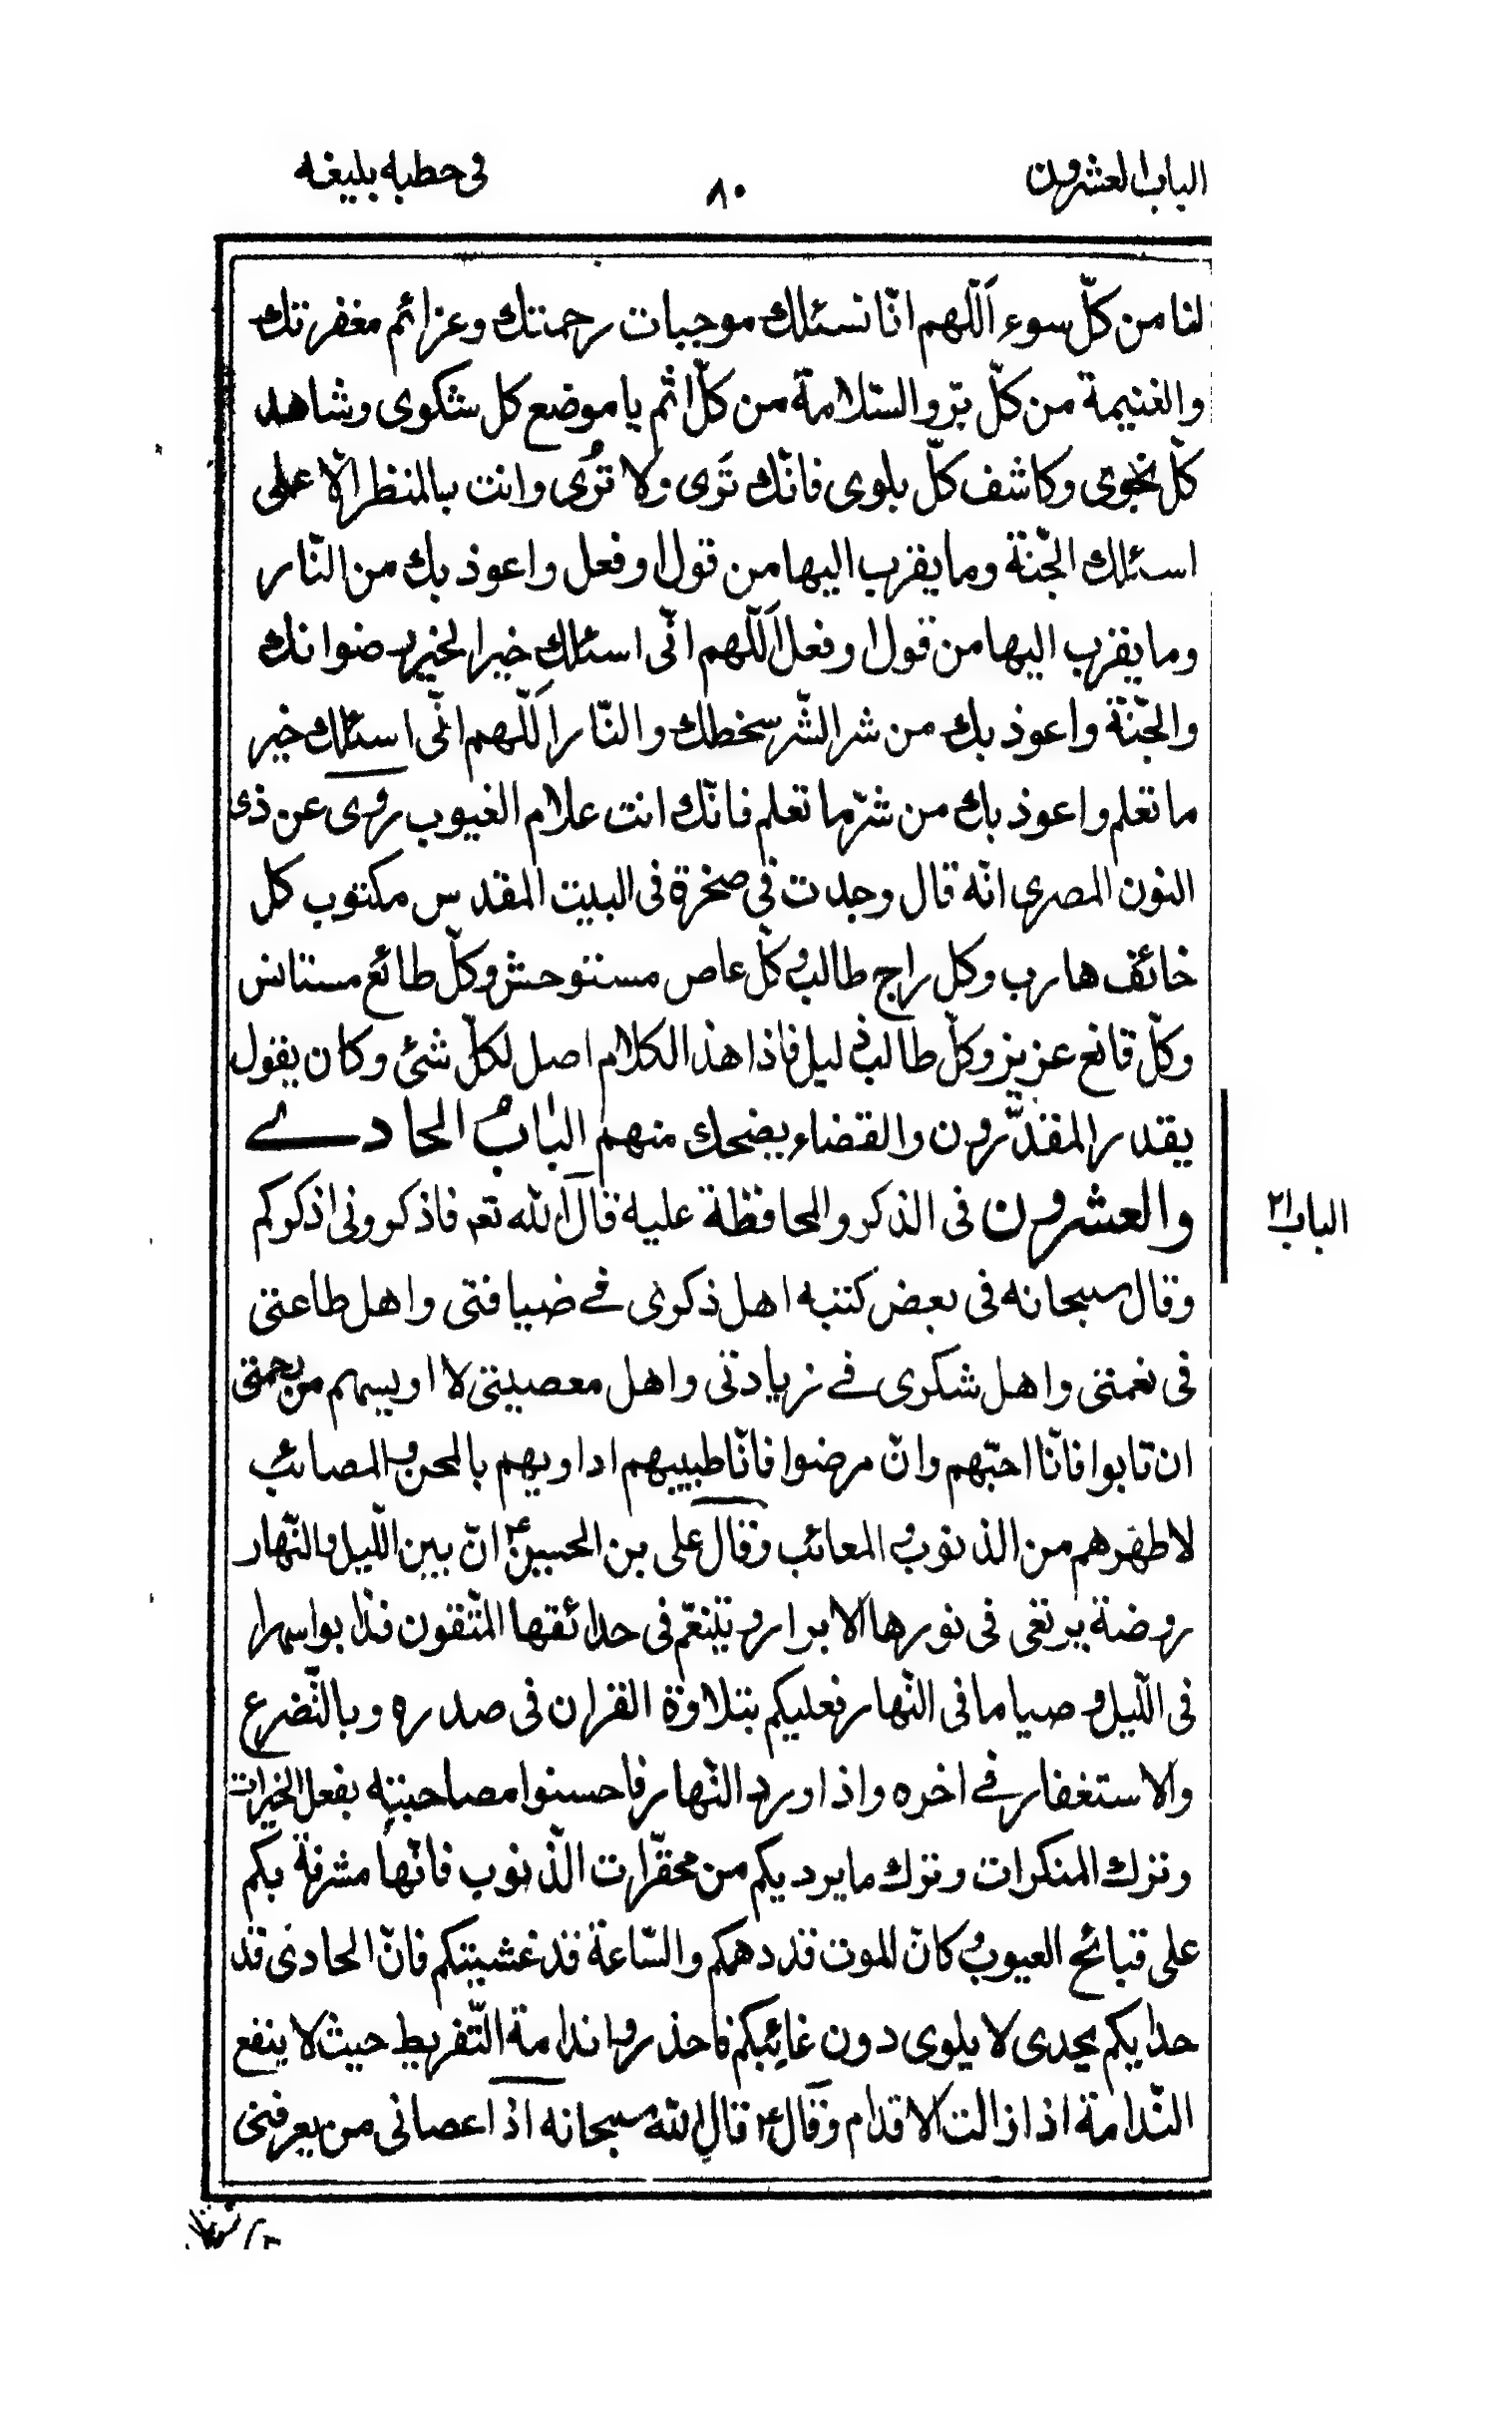 الباب العشرون
٨٠
فى خطبه بليغه
لنا من كلّ سوء اَللّهم انّا نسئلك موجبات رحمتك وعزائم مغفرتك
والغنيمة من كلّ برّ والسّلامة من كلّ اثم يا موضع كل شكوى وشاهد
كلّ نجوى وكاشف كلّ بلوى فانّك تَرى ولا تُرى وانت بالمنظر الاعلى
اسئلك الجّنة وما يقرب اليها من قول او فعل واعوذ بك من النّار
وما يقرب اليها من قول او فعل اَللّهم انّى اسئلك خير الخير رضوانك
والجّنة واعوذ بك من شر الشّر سخطك والنّار اَللّهم انّى اسئلك خير
ما تعلم واعوذ بك من شرّ ما تعلم فانّك انت علام الغيوب روى عن ذى
النون المصرى انّه قال وجدت فى صخرة فى البيت المقدس مكتوب كل
خائف هارب وكل راج طالب وكلّ عاص مستوحش وكلّ طائع مستانس
وكلّ قانع عزيز وكلّ طالب ذليل فاذا هذا الكلام اصل لكلّ شئ وكان يقول
يقدر المقدّرون والقضاء يضحك منهم البابُ الحادے
والعشرون فى الذكر والمحافظة عليه قال الله تعه فاذكرونى اذكركم
وقال سبحانه فى بعض كتبه اهل ذكرى فے ضيافتى واهل طاعتى
فى نعمتى واهل شكرى فے زيادتى واهل معصيتى لا اويسهم من رحمتى
ان تابوا فانّا احبّهم وانّ مرضوا فانّا طبيبهم اداويهم بالمحن والمصائب
لاطهّرهم من الذنوب والمعائب وقال على بن الحسين ع انّ بين اللّيل والنّهار
روضة يرتعى فى نورها الابرار ويتنعّم فى حدائقها المتّقون فذابوا سهرا
فى اللّيل وصياما فى النّهار فعليكم بتلاوة القران فى صدره وبالتّضرع
والاستغفار فے اخره واذا ورد النّهار فاحسنوا مصاحبته بفعل الخيرات
وترك المنكرات وترك ما يرديكم من محقّرات الذّنوب فانّها مشرفة بكم
على قبائح العيوب وكانّ الموت قد دهمكم والسّاعة قد غشيتكم فانّ الحادى قد
حدا بكم يحدى لا يلوى دون غايتكم فاحذروا ندامة التّفريط حيث لا ينفع
النّدامة اذا زالت الاقدام وقال ع قال الله سبحانه اذا عصانى من يعرفنى
الباب ٢١